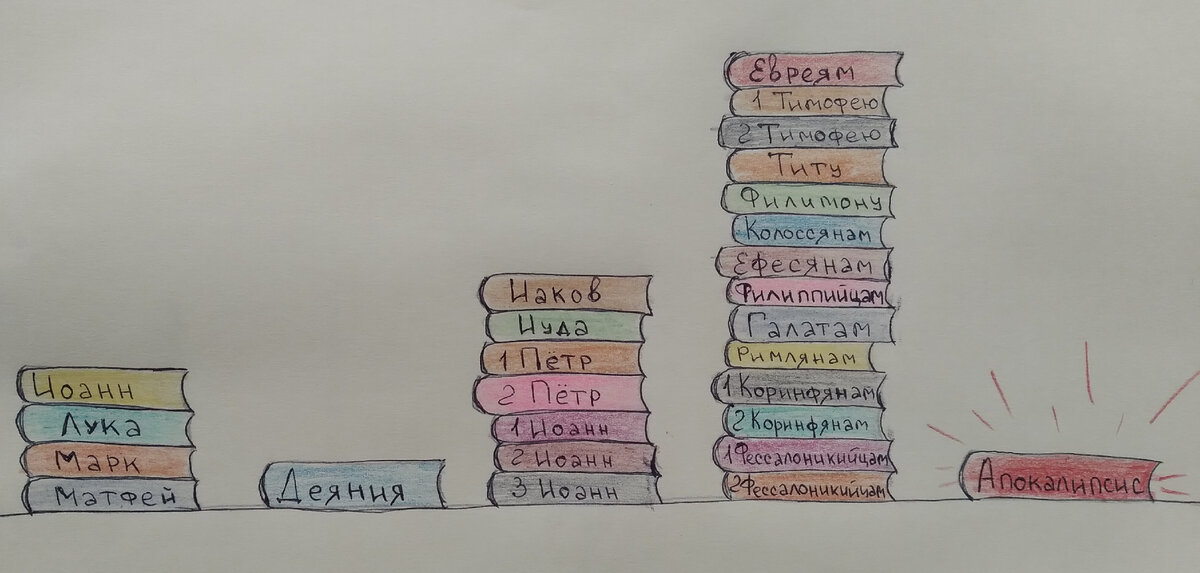 Иоанн
Лука
Марк
Матфей
Деяния
Иаков
Иуда
1 Пётр
2 Пётр
1 Иоанн
2 Иоанн
3 Иоанн
Евреям
1 Тимофею
2 Тимофею
Титу
Филимону
Колоссянам
Ефесянам
Филиппийцам
Галатам
Римлянам
1 Коринфянам
2 Коринфянам
1 Фессалоникийцам
2 Фессалоникийцам
Апокалипсис